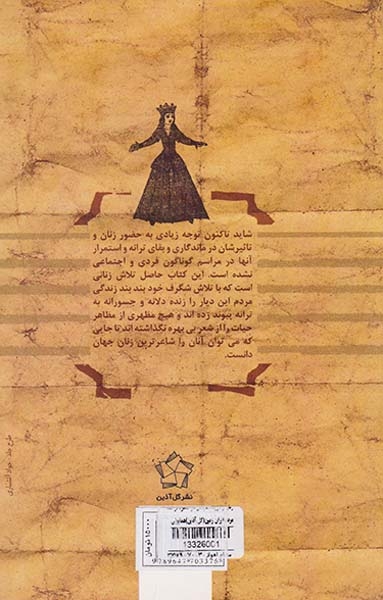 شاید تاکنون توجه زیادی به حضور زنان و
تاثیرشان در ماندگاری و بقای ترانه و استمرار
آنها در مراسم گوناگون فردی و اجتماعی
نشده است. این کتاب حاصل تلاش زنانی
است که با تلاش شگرف خود بند بند زندگی
مردم این دیار را زنده دلانه و جسورانه به
ترانه پیوند زده اند و هیچ مظهری از مظاهر
حیات را از شعر بی بهره نگذاشته اند تا جایی
که می توان آنان را شاعرترین زنان جهان
دانست.
طرح جلد: جواد آتشباری
نشر گل آذین
۱۵۰۰۰ تومان
13326001